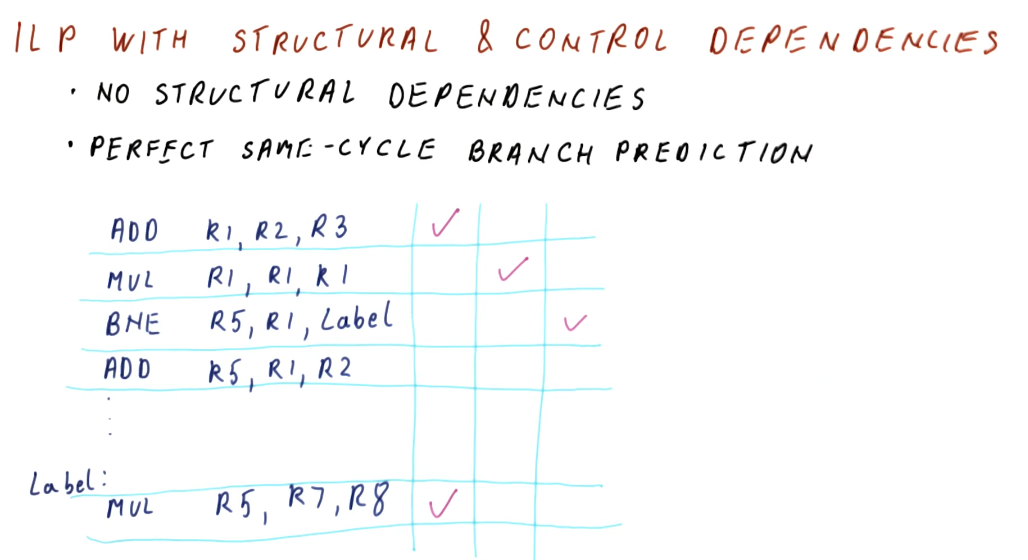 ILP WITH STRUCTURAL & CONTROL DEPENDENCIES
· NO STRUCTURAL DEPENDENCIES
· PERFECT SAME-CYCLE BRANCH PREDICTION
ADD R1, R2, R3 ✓
MUL R1, R1, R1 ✓
BNE R5, R1, Label ✓
ADD R5, R1, R2
Label:
MUL R5, R7, R8 ✓